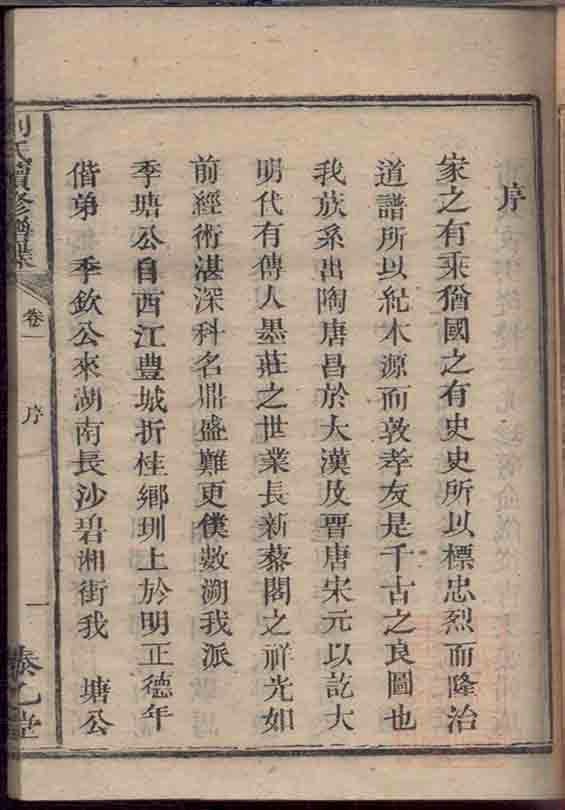 序
家之有乘猶國之有史史所以標忠烈而隆治
道譜所以紀木源而敦孝友是千古之良圖也
我族系出陶唐昌於大漢及晋唐宋元以訖大
明代有傳人墨莊之世業長新藜閣之祥光如
前經術湛深科名鼎盛難更僕數溯我派
季塘公自西江豊城折桂鄉圳上於明正德年
偕弟　季欽公來湖南長沙碧湘街我　塘公
劉氏續修譜牒
卷一
序
一
泰乙堂